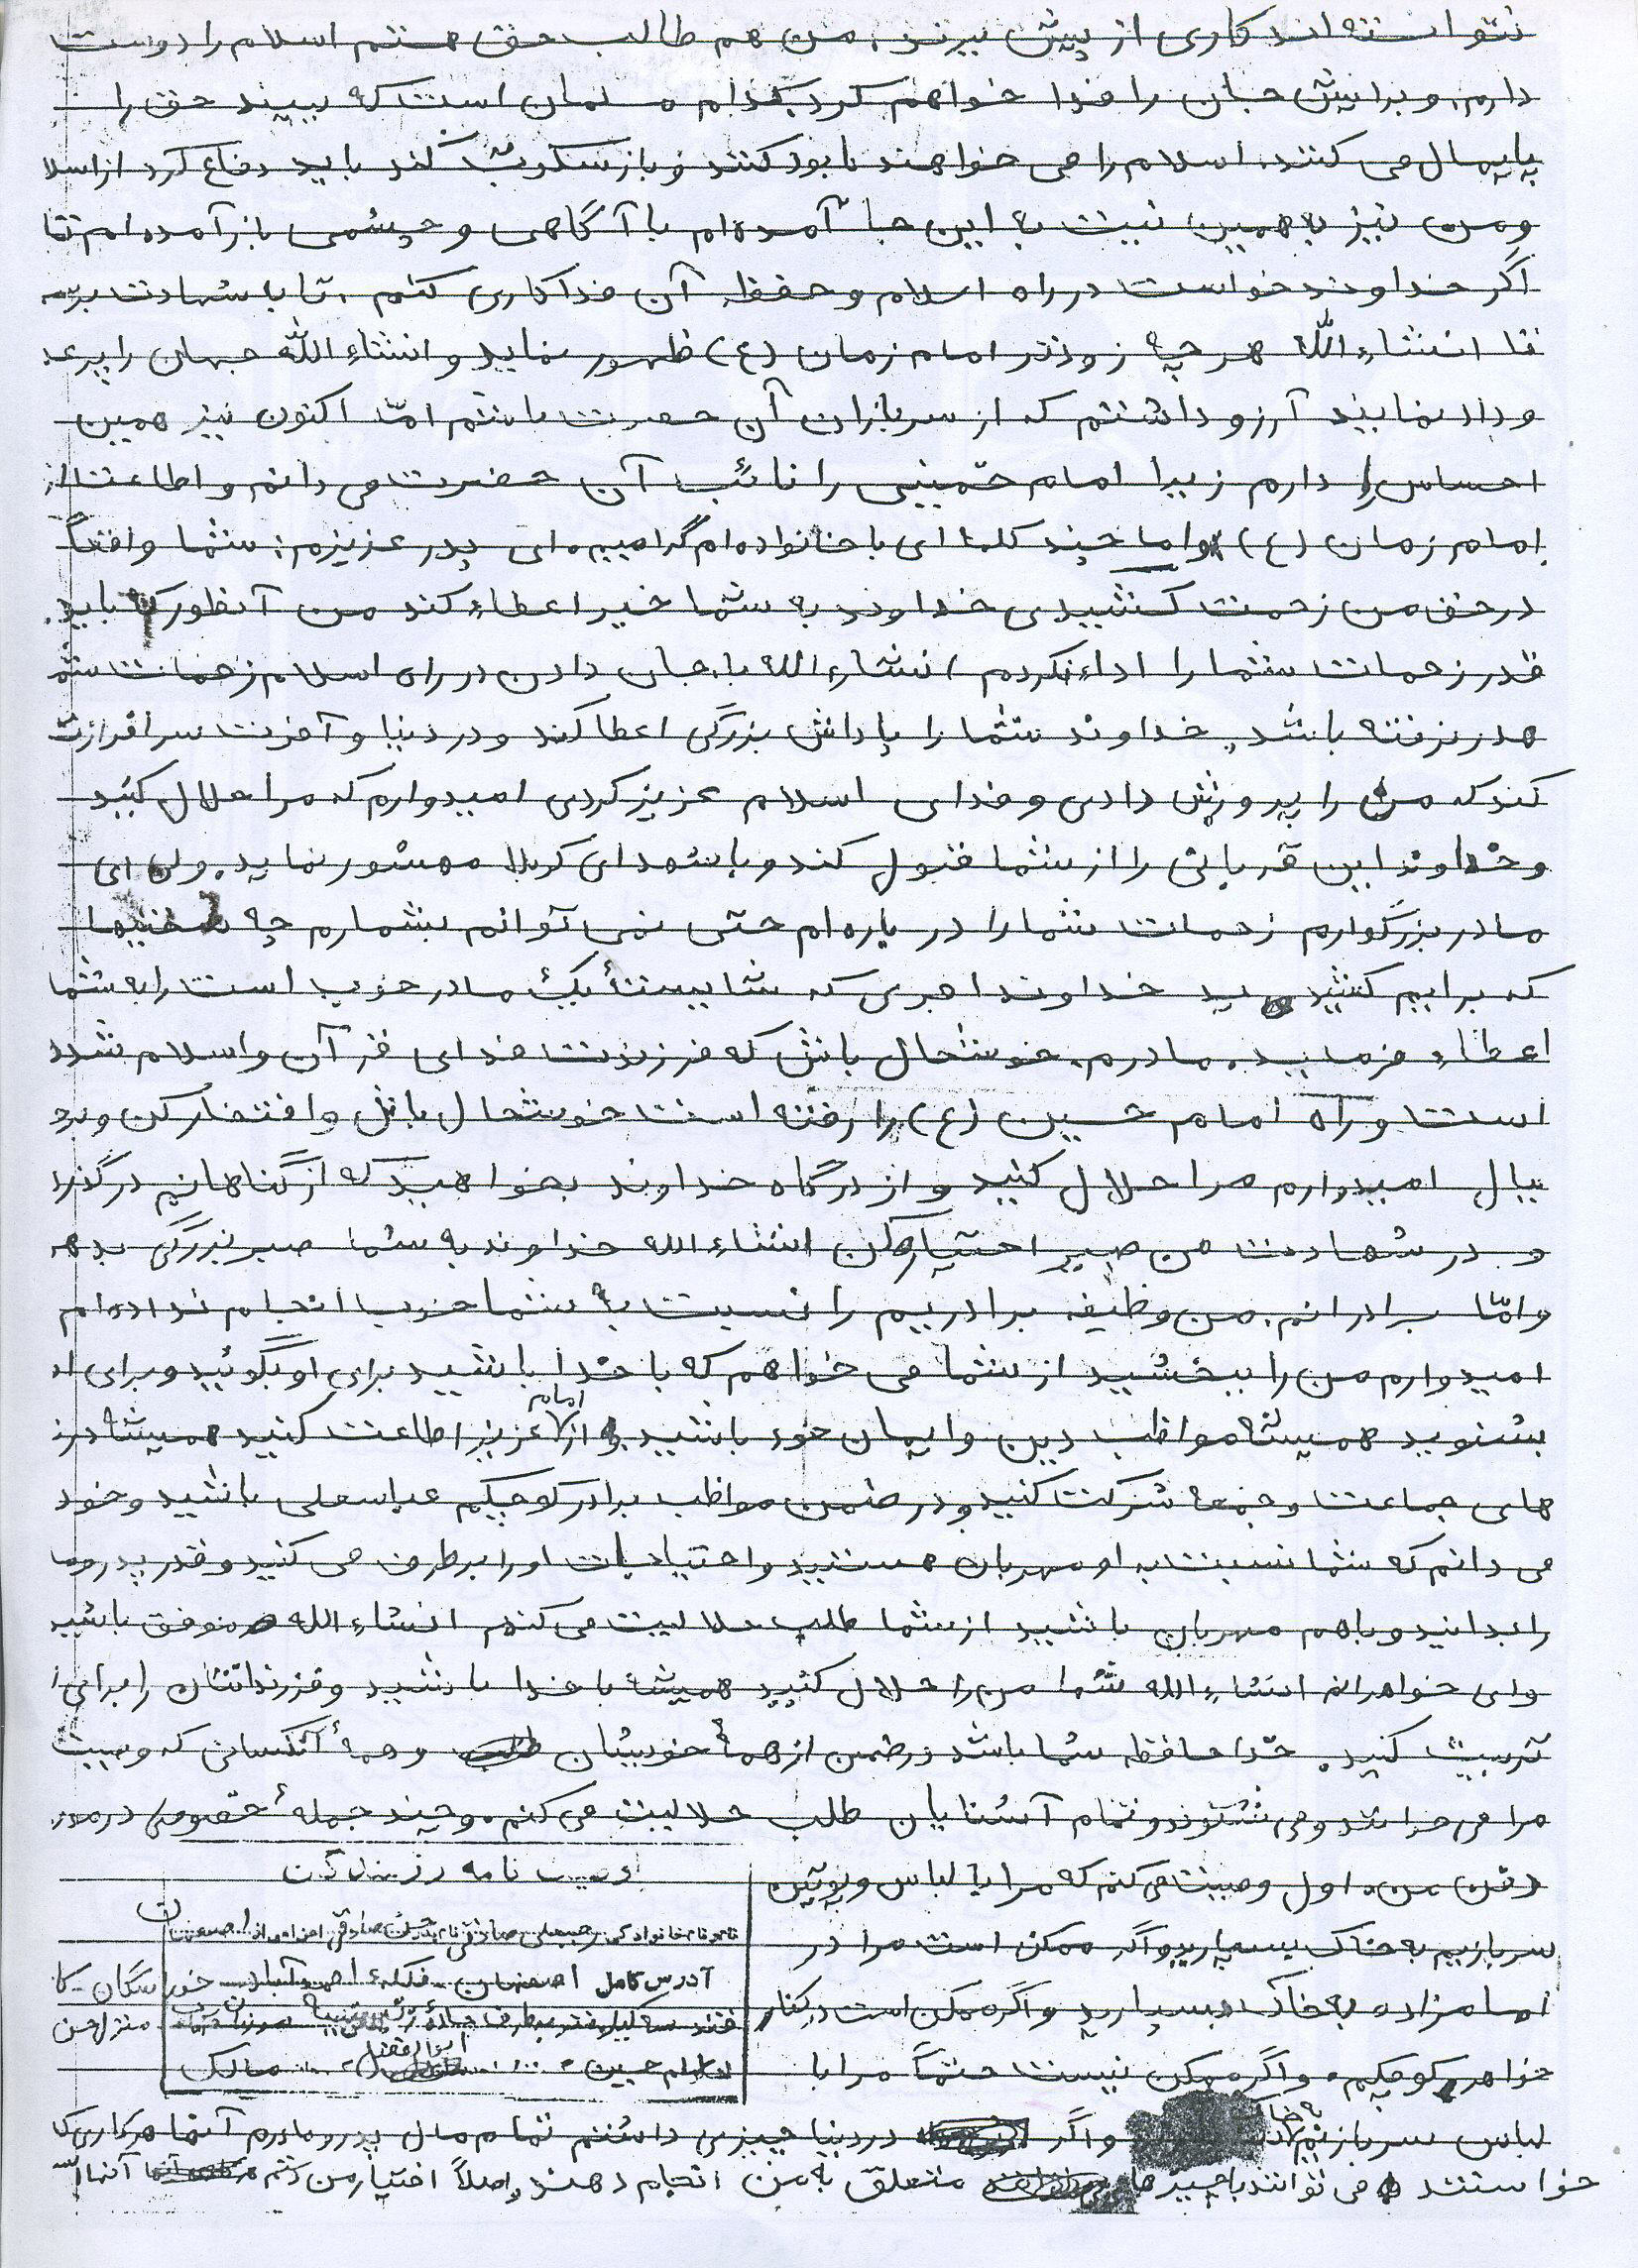 نتوانسته‌اند کاری از پیش ببرند. من هم طالب حق هستم اسلام را دوست
دارم. و برایش جان را فدا خواهم کرد کدام مسلمان است که ببیند حق را
پایمال می کنند. اسلام را می خواهند نابود کنند و باز سکوت کند باید دفاع کرد از اسلا
و من نیز به همین نیت به این جا آمده‌ام با آگاهی و چشمی باز آمده‌ام تا
اگر خداوند خواست در راه اسلام و حفظ آن فداکاری کنم. تا با شهادت
تا انشاءالله هر چه زودتر امام زمان (ع) ظهور نماید و انشاءالله جهان را پر عد
و داد نمایند آرزو داشتم که از سربازان آن حضرت باشم امّا اکنون نیز همین
احساس را دارم زیرا امام خمینی را نائب آن حضرت می دانم و اطاعت از
امام زمان (ع) و اما چند کلمه ای با خانواده‌ام گرامیم. ای پدر عزیزم: شما واقعاً
در حق من زحمت کشیدی خداوند به شما خیر اعطاء کند من آنطور که باید
قدر زحمات شما را اداء نکردم انشاءالله با جان دادن در راه اسلام زحمات شم
هدر نرفته باشد. خداوند شما را پاداش بزرگی اعطا کند و در دنیا و آخرت سرافرازت
کند که من را پرورش دادی و فدای اسلام عزیز کردی امیدوارم که مرا حلال کنید
و خداوند این قربانی را از شما قبول کند و با شهدای کربلا مهشور نماید. ولی ای
مادر بزرگوارم زحمات شما را در باره‌ام حتی نمی توانم بشمارم چه سختیها
که برایم کشیدید خداوند اجری که شایستهٔ یک مادر خوب است را به شما
اعطاء فرماید. مادرم. خوشحال باش که فرزندت فدای قرآن و اسلام شده
است و راه امام حسین (ع) را رفته است خوشحال باش و افتخار کن و بخود
ببال امیدوارم مرا حلال کنید و از درگاه خداوند بخواهید که از گناهانم درگذرد
و در شهادت من صبر اختیار کن انشاءالله خداوند به شما صبر بزرگی بدهد
و امّا برادرانم. من وظیفه برادریم را نسبت به شما خوب انجام نداده‌ام
امیدوارم من را ببخشید از شما می خواهم که با خدا باشید برای او بگوئید و برای او
بشنوید همیشه مواظب دین و ایمان خود باشید و از امام عزیز اطاعت کنید همیشه در نـ
های جماعت و جمعه شرکت کنید و در ضمن مواظب برادر کوچکم عباسعلی باشید و خود
می دانم که شما نسبت به او مهربان هستید و احتیاجات او را برطرف می کنید و قدر پدر و ما
را بدانید و با هم مهربان باشید از شما طلب حلالیت می کنم انشاءالله موفق باشید
و ای خواهرانم انشاءالله شما من را حلال کنید همیشه با خدا باشید و فرزندانتان را برای ا
تربیت کنید. خدا حافظ شما باشد در ضمن از همهٔ خوبیتان و همهٔ آنکسانی که وصیت
مرا می خوانند و می شنوند و تمام آشنایان طلب حلالیت می کنم. و چند جملهٔ خصوصی در مورد
دفن من. اول وصیت می کنم که مرا با لباس و پوتین
سربازیم به خاک بسپارید و اگر ممکن است مرا در
امامزاده به خاک بسپارید و اگر ممکن است در کنار
خواهر کوچکم. و اگر ممکن نیست حتماً مرا با
لباس سربازیم به خاک و اگر در دنیا چیزی داشتم تمام مال پدر و مادرم آنها هر کاری کـ
خواستند می توانند با چیزهای متعلق به من انجام دهند اصلاً اختیار من آنها
وصیت نامه رزمندگان
نام و نام خانوادگی رجبعلی صادقی نام پدر حسن صادقی اعزامی از اصفهان
آدرس کامل اصفهان - فلکهٔ احمدآباد - خوراسگان -
منزل حسن
ابوالفضل
امام حسین - مالک